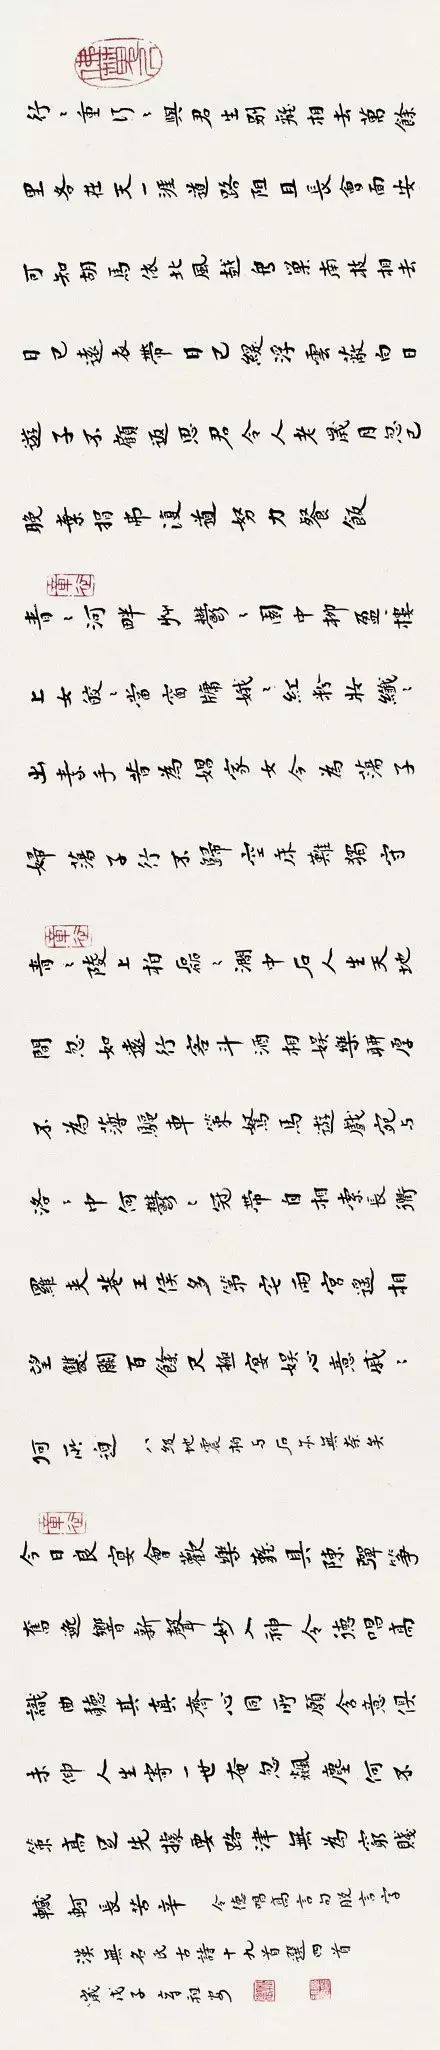 行〻重行〻與君生別離相去萬餘
里各在天一涯道路阻且長會面安
可知胡馬依北風越鳥巢南枝相去
日已遠衣帶日已緩浮雲蔽白日
遊子不顧返思君令人老歲月忽已
晚棄捐弗復道努力餐飯
青〻河畔艸鬱〻園中柳盈〻樓
上女皎〻當窗牖娥〻紅粉妝纖〻
出素手昔為娼家女今為蕩子
婦蕩子行不歸空床難獨守
青〻陵上柏磊〻澗中石人生天地
間忽如遠行客斗酒相娛樂聊厚
不為薄驅車策駑馬遊戲宛与
洛〻中何鬱〻冠帶自相索長衢
羅夾巷王侯多第宅兩宮遙相
望雙闕百餘尺極宴娛心意戚〻
何所迫 八級地震柏与石亦無奈矣
今日良宴會歡樂難具陳彈箏
奮逸響新聲妙入神令德唱高
識曲聽其真齊心同所願含意俱
未伸人生寄一世奄忽飆塵何不
策高足先據要路津無為窮賤
轗軻長苦辛 令德唱高言句脫言字
漢無名氏古詩十九首選四首
歲戊子章祖安